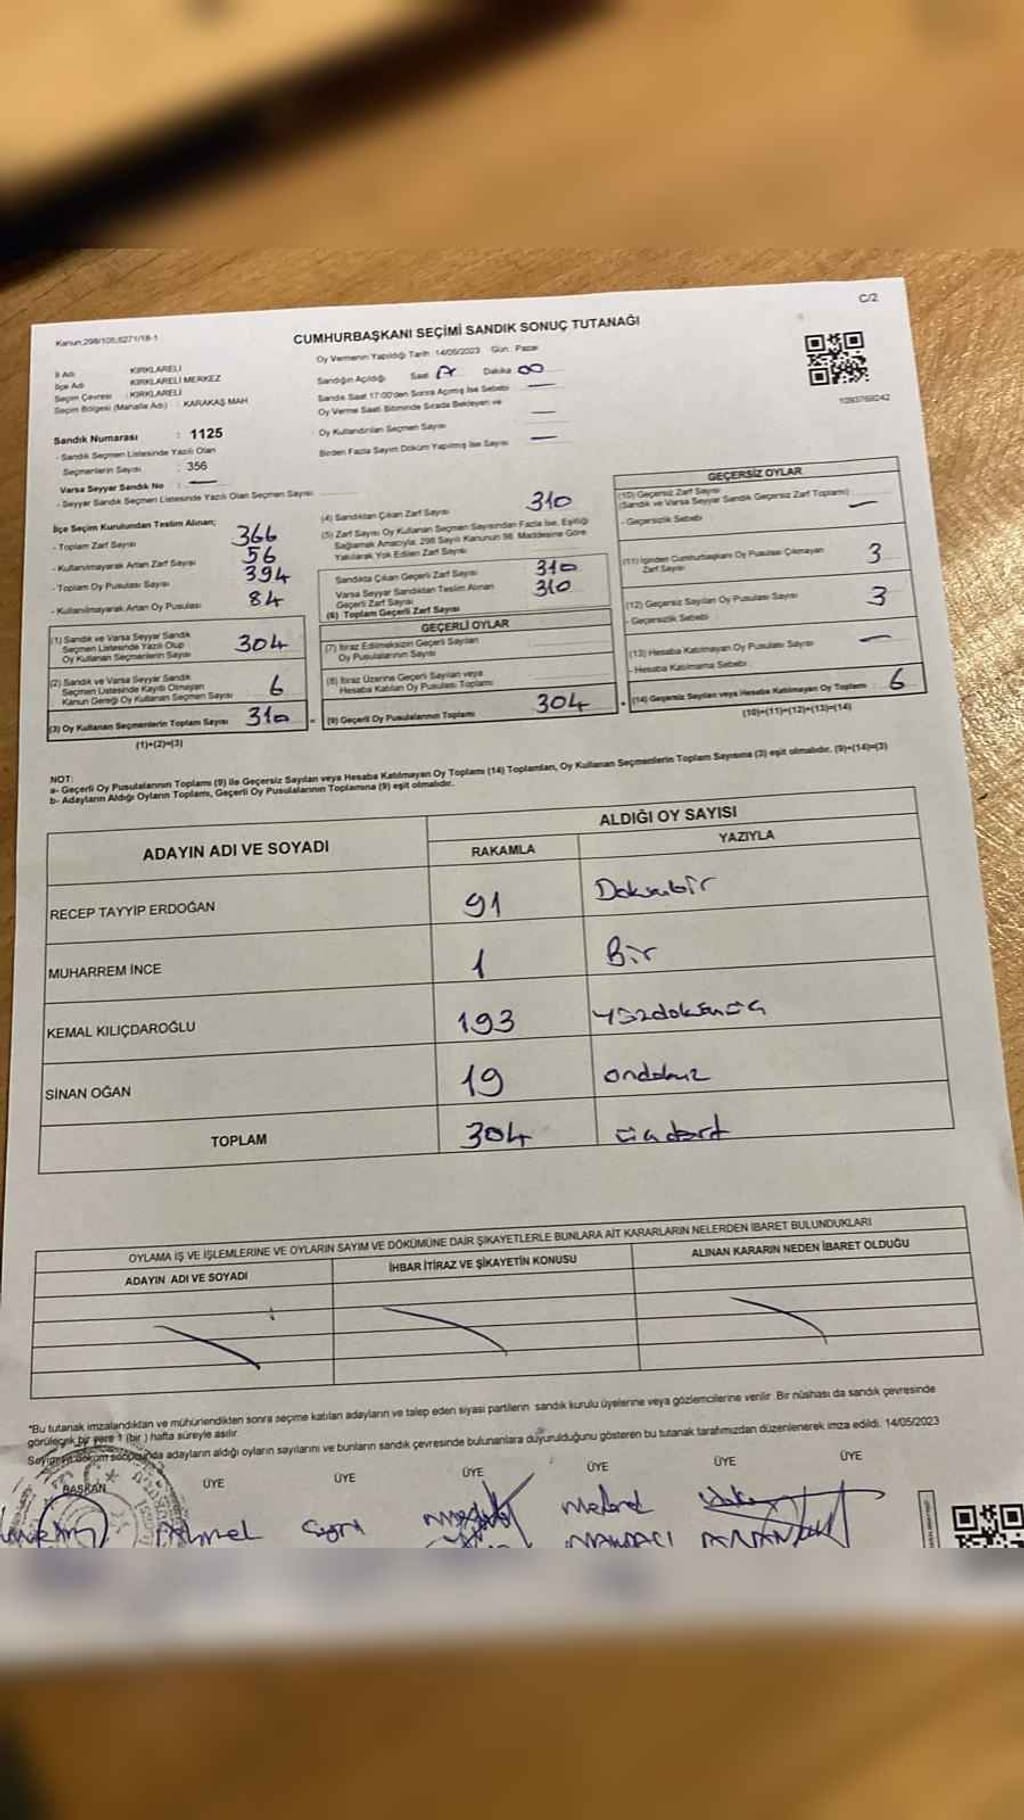 C/2
Kanun:298/105,6271/18-1
CUMHURBAŞKANI SEÇİMİ SANDIK SONUÇ TUTANAĞI
Oy Vermenin Yapıldığı Tarih :14/05/2023 Gün : Pazar
İl Adı : KIRKLARELİ
İlçe Adı : KIRKLARELİ MERKEZ
Seçim Çevresi : KIRKLARELİ
Seçim Bölgesi (Mahalle Adı) : KARAKAŞ MAH
Sandığın Açıldığı Saat Dakika 00
Sandık Saat 17:00'den Sonra Açılmış İse Sebebi —
Oy Verme Saati Bitiminde Sırada Bekleyen ve
Oy Kullandırılan Seçmen Sayısı —
Birden Fazla Sayım Döküm Yapılmış İse Sayısı —
1093768242
Sandık Numarası : 1125
- Sandık Seçmen Listesinde Yazılı Olan
Seçmenlerin Sayısı : 356
Varsa Seyyar Sandık No : —
- Seyyar Sandık Seçmen Listesinde Yazılı Olan Seçmen Sayısı
İlçe Seçim Kurulundan Teslim Alınan;
- Toplam Zarf Sayısı 366
- Kullanılmayarak Artan Zarf Sayısı 56
- Toplam Oy Pusulası Sayısı 394
- Kullanılmayarak Artan Oy Pusulası 84
(1) Sandık ve Varsa Seyyar Sandık
Seçmen Listesinde Yazılı Olup
Oy Kullanan Seçmenlerin Sayısı 304
(2) Sandık ve Varsa Seyyar Sandık
Seçmen Listesinde Kayıtlı Olmayan
Kanun Gereği Oy Kullanan Seçmen Sayısı 6
(3) Oy Kullanan Seçmenlerin Toplam Sayısı 310
(1)+(2)=(3)
(4) Sandıktan Çıkan Zarf Sayısı 310
(5) Zarf Sayısı Oy Kullanan Seçmen Sayısından Fazla İse, Eşitliği
Sağlamak Amacıyla; 298 Sayılı Kanunun 98. Maddesine Göre
Yakılarak Yok Edilen Zarf Sayısı
Sandıkta Çıkan Geçerli Zarf Sayısı 310
Varsa Seyyar Sandıktan Teslim Alınan
Geçerli Zarf Sayısı 310
(6) Toplam Geçerli Zarf Sayısı
GEÇERLİ OYLAR
(7) İtiraz Edilmeksizin Geçerli Sayılan
Oy Pusulalarının Sayısı
(8) İtiraz Üzerine Geçerli Sayılan veya
Hesaba Katılan Oy Pusulası Toplamı
(9) Geçerli Oy Pusulalarının Toplamı 304
GEÇERSİZ OYLAR
(10) Geçersiz Zarf Sayısı
(Sandık ve Varsa Seyyar Sandık Geçersiz Zarf Toplamı) —
- Geçersizlik Sebebi
(11) İçinden Cumhurbaşkanı Oy Pusulası Çıkmayan
Zarf Sayısı 3
(12) Geçersiz Sayılan Oy Pusulası Sayısı 3
- Geçersizlik Sebebi
(13) Hesaba Katılmayan Oy Pusulası Sayısı —
- Hesaba Katılmama Sebebi
(14) Geçersiz Sayılan veya Hesaba Katılmayan Oy Toplamı 6
(10)+(11)+(12)+(13)=(14)
NOT:
a- Geçerli Oy Pusulalarının Toplamı (9) ile Geçersiz Sayılan veya Hesaba Katılmayan Oy Toplamı (14) Toplamları, Oy Kullanan Seçmenlerin Toplam Sayısına (3) eşit olmalıdır. (9)+(14)=(3)
b- Adayların Aldığı Oyların Toplamı, Geçerli Oy Pusulalarının Toplamına (9) eşit olmalıdır.
ADAYIN ADI VE SOYADI
ALDIĞI OY SAYISI
RAKAMLA YAZIYLA
RECEP TAYYİP ERDOĞAN 91 Doksanbir
MUHARREM İNCE 1 Bir
KEMAL KILIÇDAROĞLU 193 yüzdoksanüç
SİNAN OĞAN 19 ondokuz
TOPLAM 304 üçdört
OYLAMA İŞ VE İŞLEMLERİNE VE OYLARIN SAYIM VE DÖKÜMÜNE DAİR ŞİKAYETLERLE BUNLARA AİT KARARLARIN NELERDEN İBARET BULUNDUKLARI
ADAYIN ADI VE SOYADI İHBAR İTİRAZ VE ŞİKAYETİN KONUSU ALINAN KARARIN NEDEN İBARET OLDUĞU
*Bu tutanak imzalandıktan ve mühürlendikten sonra seçime katılan adayların ve talep eden siyasi partilerin sandık kurulu üyelerine veya gözlemcilerine verilir. Bir nüshası da sandık çevresinde
görülecek bir yere 1 (bir) hafta süreyle asılır.
Sayım ve döküm sonucunda adayların aldığı oyların sayılarını ve bunların sandık çevresinde bulunanlara duyurulduğunu gösteren bu tutanak tarafımızdan düzenlenerek imza edildi. 14/05/2023
BAŞKAN ÜYE ÜYE ÜYE ÜYE ÜYE ÜYE
Ahmet